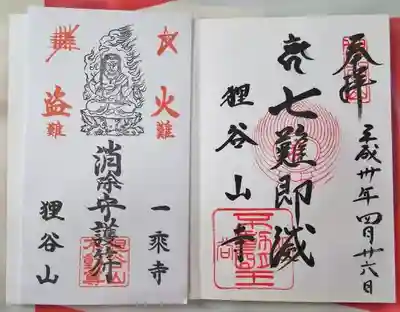 平成卅年四月廿六日
奉拝
七難即滅
狸谷山寺
火難
一乗寺
消除守護符
盗難
狸谷山